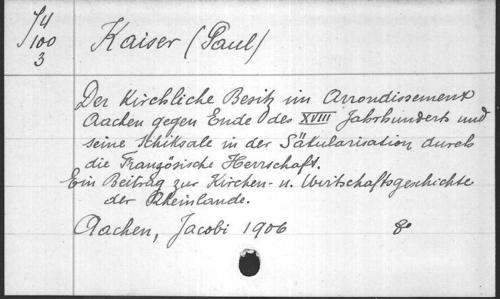 J4
100
3
Kaiser (Paul)
Der Kirchliche Besitz im Arrondissement
Aachen gegen Ende des XVIII Jahrhunderts und
seine Schiksale in der Säkularisation durch
die Französische Herrschaft.
Ein Beitrag zur Kirchen- u. Wirtschaftsgeschichte
der Rheinlande.
Aachen, Jacobi 1906 8°